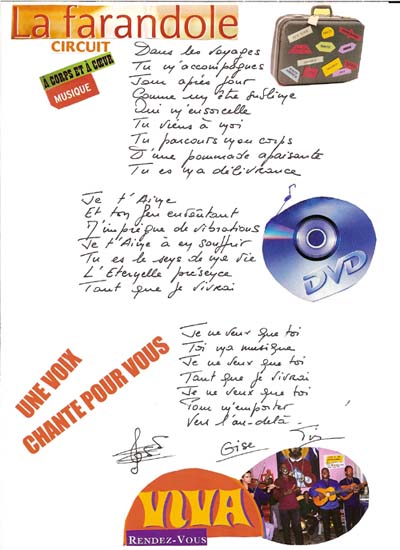 La farandole
CIRCUIT
A CORPS ET À CŒUR
MUSIQUE
Dans les voyages
Tu m'accompagnes
Jour après jour
Comme un être sublime
Qui m'ensorcelle
Tu viens à moi
Tu parcours mon corps
D'une pommade apaisante
Tu es ma délivrance
Je t'Aime
Et ton feu envoûtant
M'imprègne de vibrations
Je t'Aime à en souffrir
Tu es le sens de ma vie
L'Eternelle présence
Tant que je vivrai
DVD
Je ne veux que toi
Toi ma musique
Je ne veux que toi
Tant que je vivrai
Je ne veux que toi
Pour m'emporter
Vers l'au-delà
UNE VOIX
CHANTE POUR VOUS
Gise
VIVA
RENDEZ-VOUS